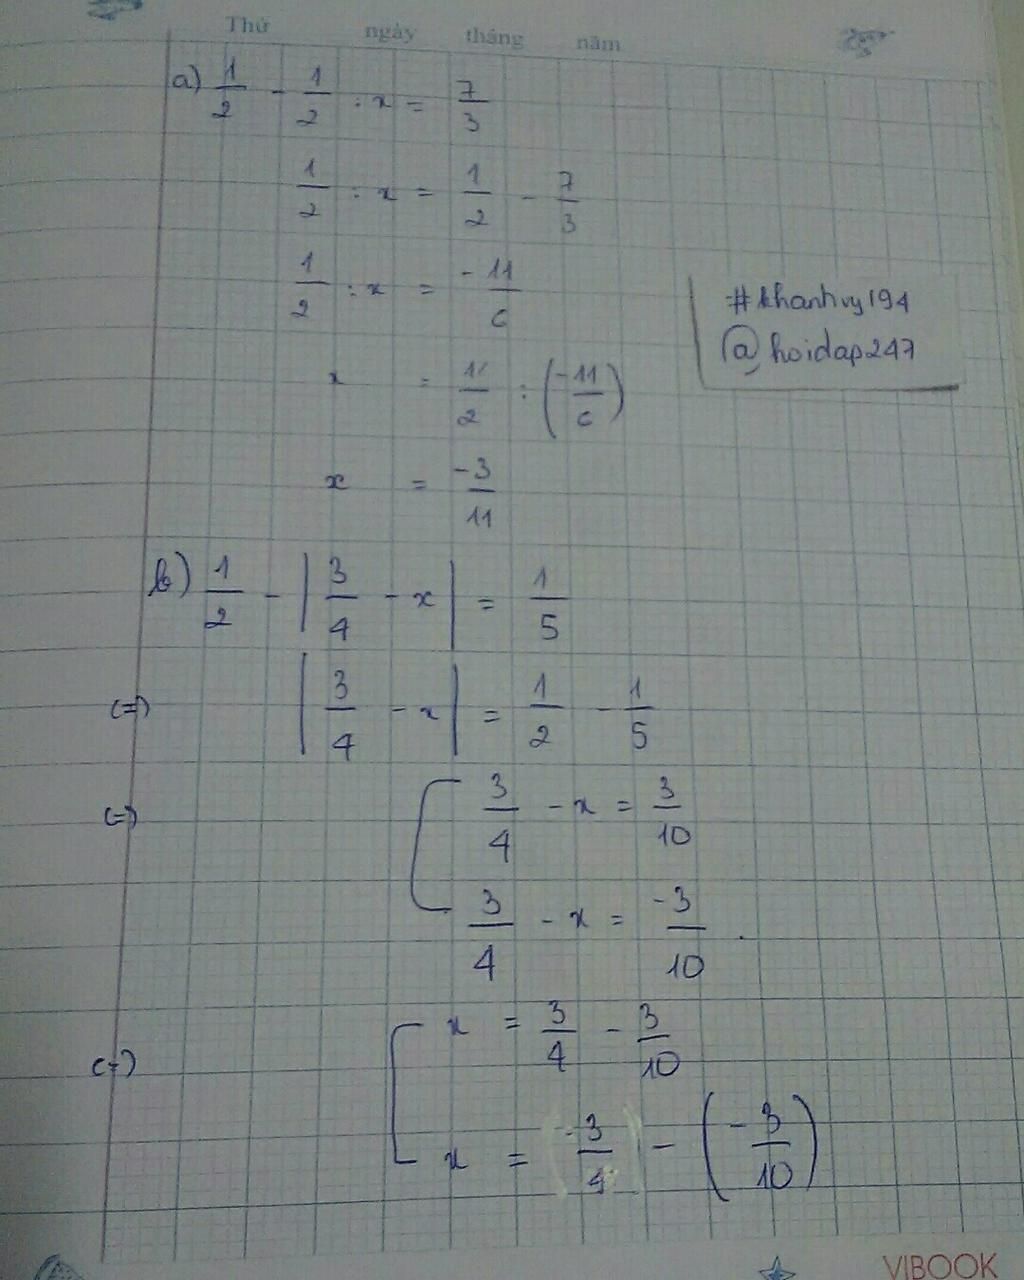 Thứ ngày tháng năm
a) 1/2 - 1/2 : x = 7/3
1/2 : x = 1/2 - 7/3
1/2 : x = -11/6
#khanhvy194
@hoidap247
x = 1/2 : (-11/6)
x = -3/11
b) 1/2 - |3/4 - x| = 1/5
(=) |3/4 - x| = 1/2 - 1/5
(=) [ 3/4 - x = 3/10
3/4 - x = -3/10
(=) [ x = 3/4 - 3/10
x = 3/4 - (-3/10)
VIBOOK